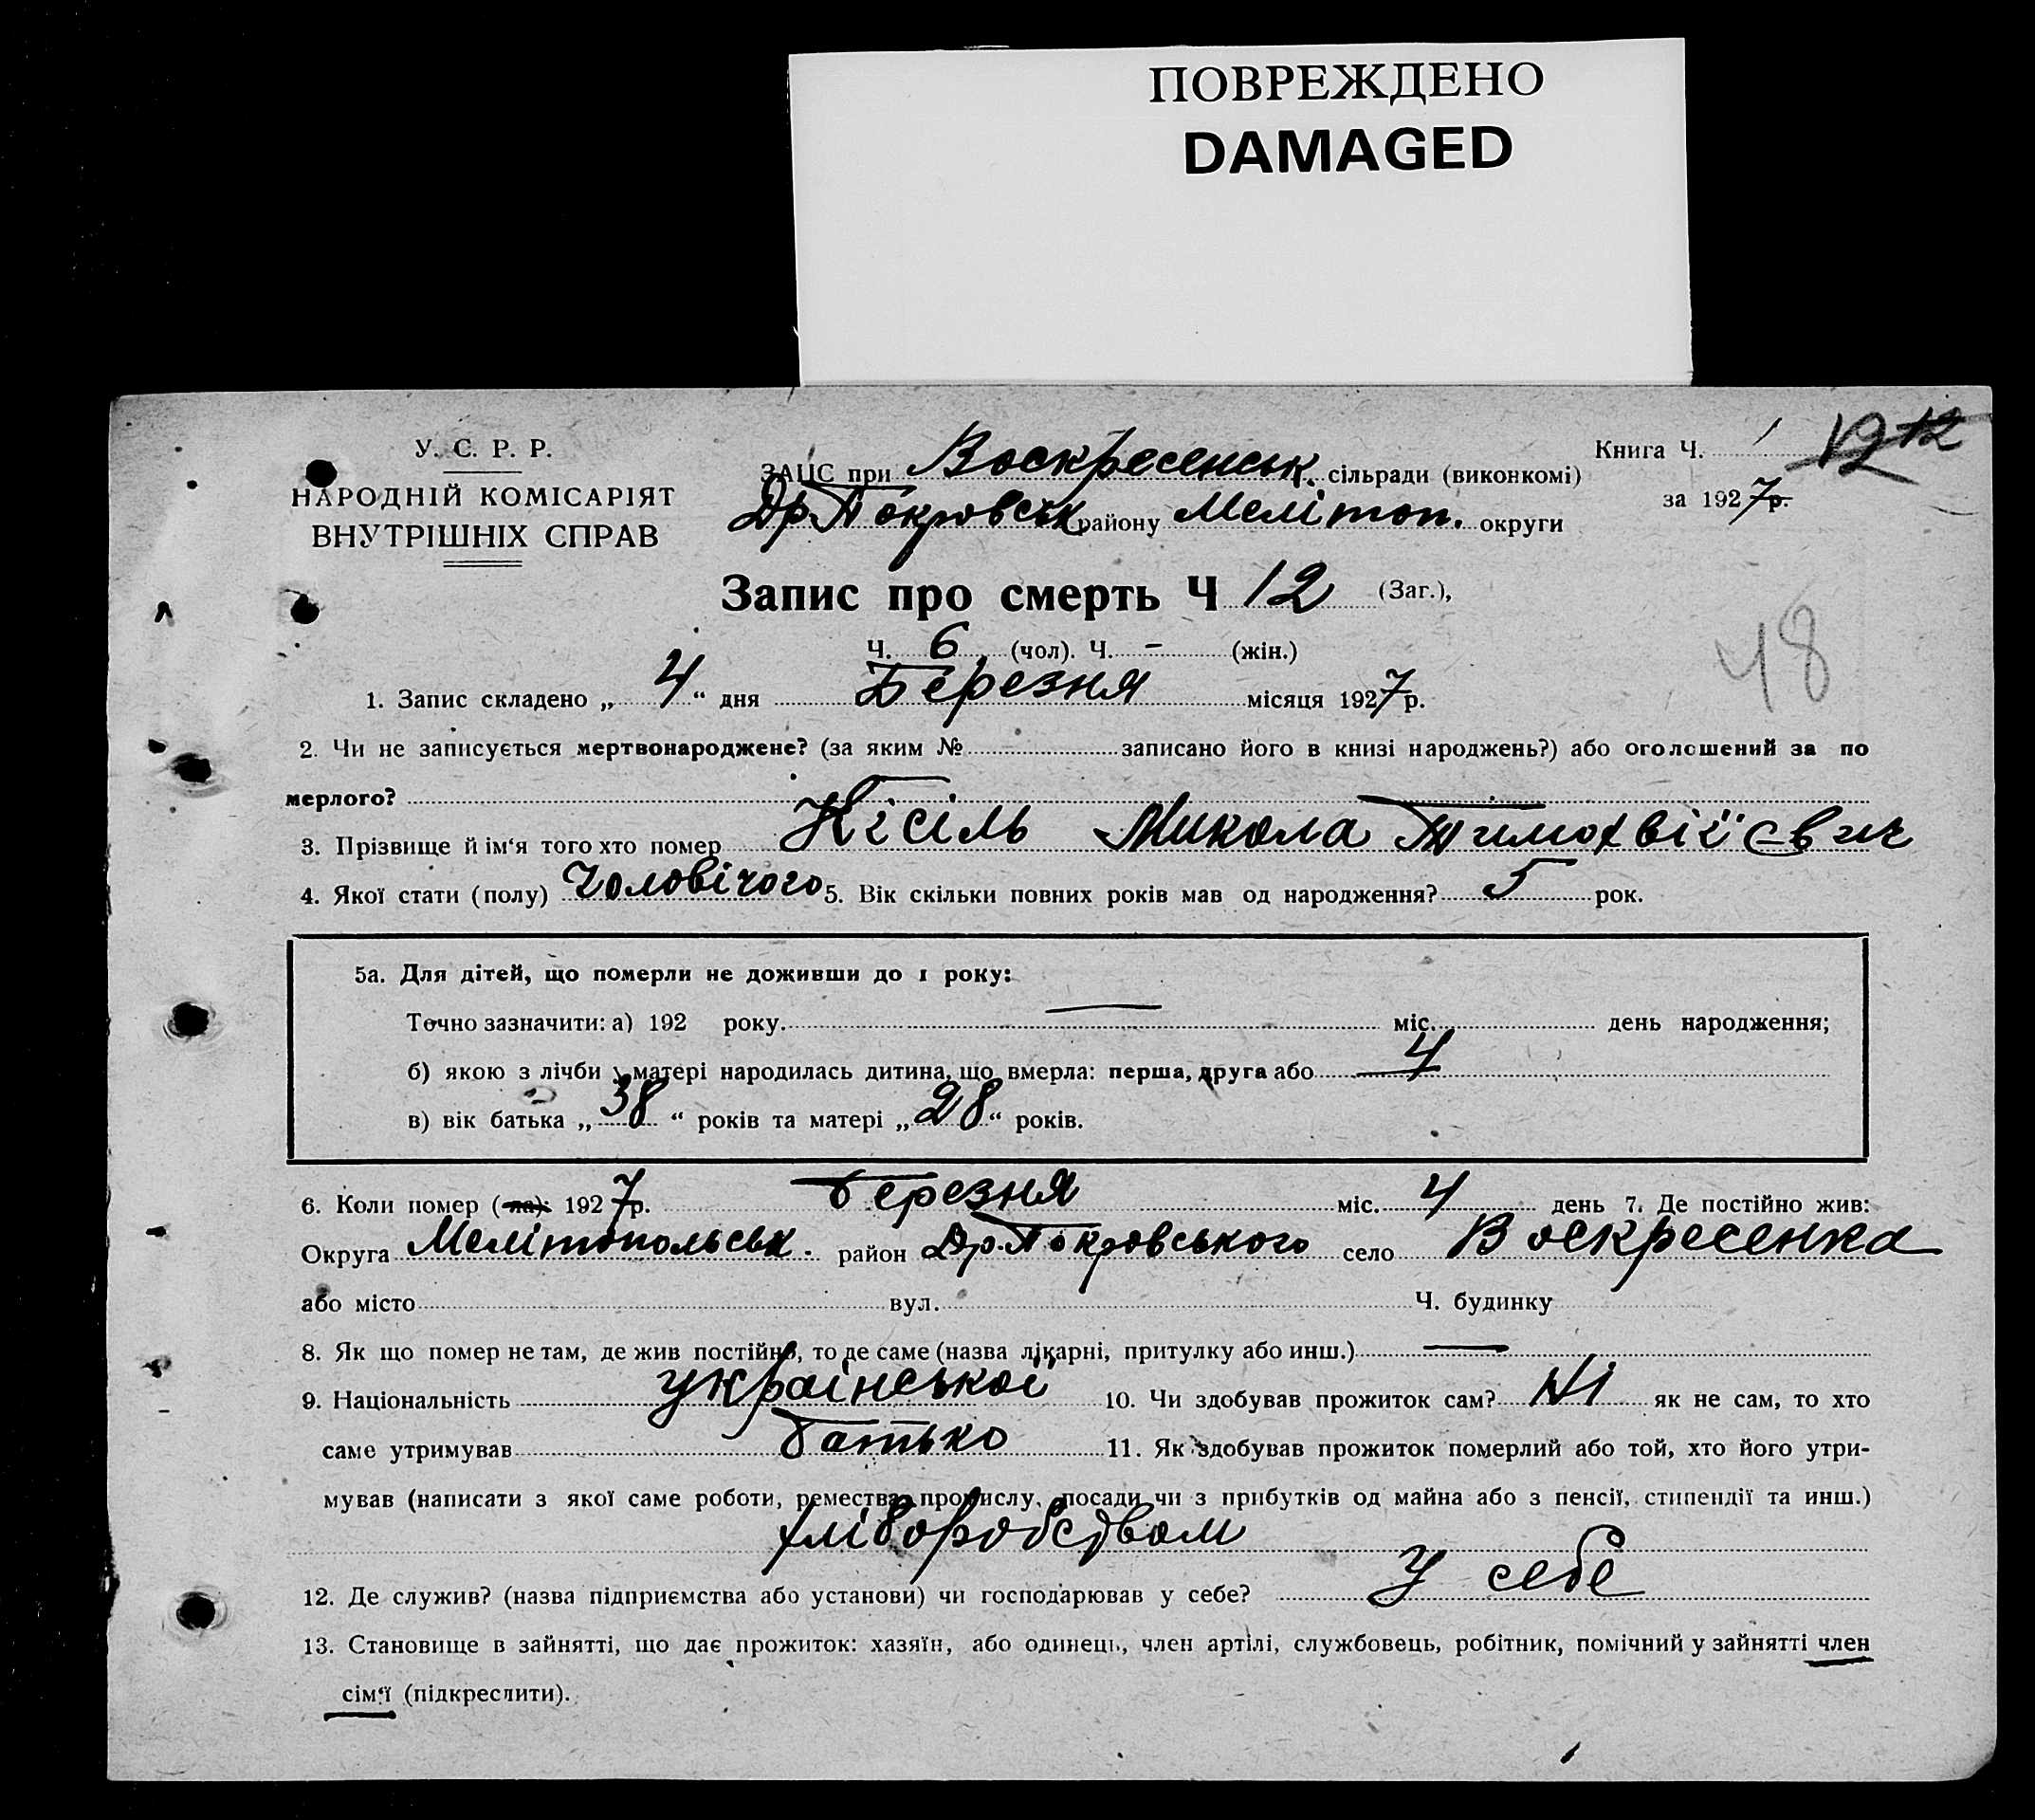 ПОВРЕЖДЕНО
DAMAGED
У. С. Р. Р.
НАРОДНІЙ КОМІСАРІЯТ
ВНУТРІШНІХ СПРАВ
ЗАЦС при Воскресенськ. сільради (виконкомі)
Др. Покровськ району Мелітоп. округи
Книга Ч. 1
12 12
за 1927 р.
Запис про смерть Ч 12 (Заг.),
Ч. 6 (чол). Ч. - (жін.)
48
1. Запис складено „ 4 “ дня Березня місяця 1927 р.
2. Чи не записується мертвонароджене? (за яким № записано його в книзі народжень?) або оголошений за по
мерлого?
3. Прізвище й ім‘я того хто помер Кісіль Микола Тимохвіїєвич
4. Якої стати (полу) Чоловічого 5. Вік скільки повних років мав од народження? 5 рок.
5а. Для дітей, що померли не доживши до 1 року:
Точно зазначити: а) 192 року. — міс. день народження;
б) якою з лічби у матері народилась дитина, що вмерла: перша, друга або 4
в) вік батька „ 38 “ років та матері „ 28 “ років.
6. Коли помер (ла): 1927 р. Березня міс. 4 день 7. Де постійно жив:
Округа Мелітопольськ. район Др. Покровського село Воскресенка
або місто вул. Ч. будинку
8. Як що помер не там, де жив постійно, то де саме (назва лікарні, притулку або инш.) —
9. Національність української 10. Чи здобував прожиток сам? Ні як не сам, то хто
саме утримував батько 11. Як здобував прожиток померлий або той, хто його утри-
мував (написати з якої саме роботи, ремества, промислу, посади чи з прибутків од майна або з пенсії, стипендії та инш.)
хліборобством
12. Де служив? (назва підприємства або установи) чи господарював у себе? у себе
13. Становище в зайнятті, що дає прожиток: хазяїн, або одинець, член артілі, службовець, робітник, помічний у зайнятті член
сім‘ї (підкреслити).